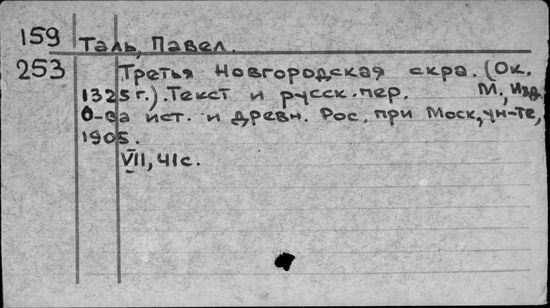 159 Таль, Павел.
253 Третья Новгородская скра. (Ок.
1325 г.). Текст и русск. пер. М., изд.
О-ва ист. и древн. Рос. при Моск. ун-те,
1905.
VII, 41с.